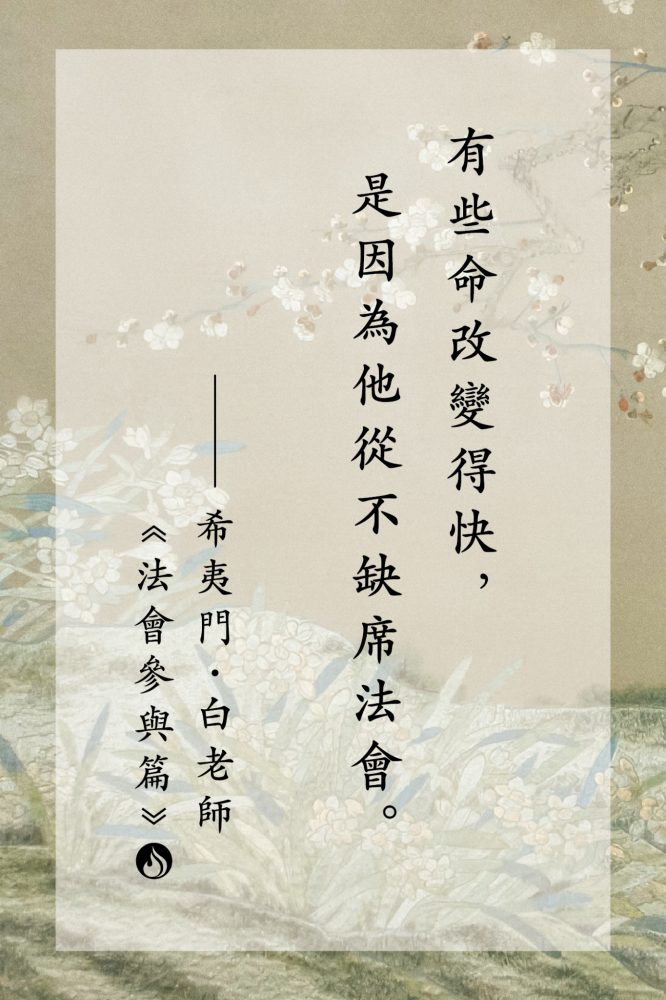 有些命改變得快，
是因為他從不缺席法會。
——希夷門・白老師
《法會參與篇》